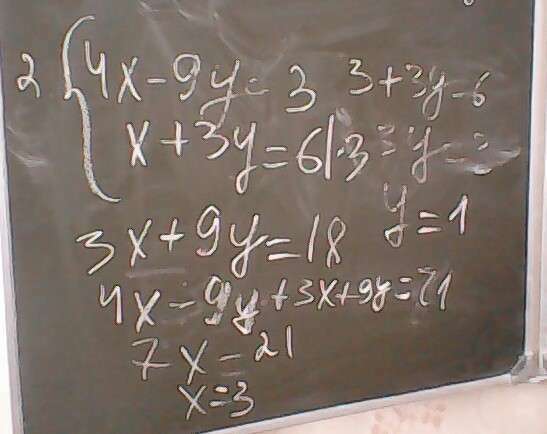 2 { 4x - 9y = 3
x + 3y = 6 | · 3
3x + 9y = 18
4x - 9y + 3x + 9y = 21
7x = 21
x = 3
3 + 3y = 6
3y = 3
y = 1